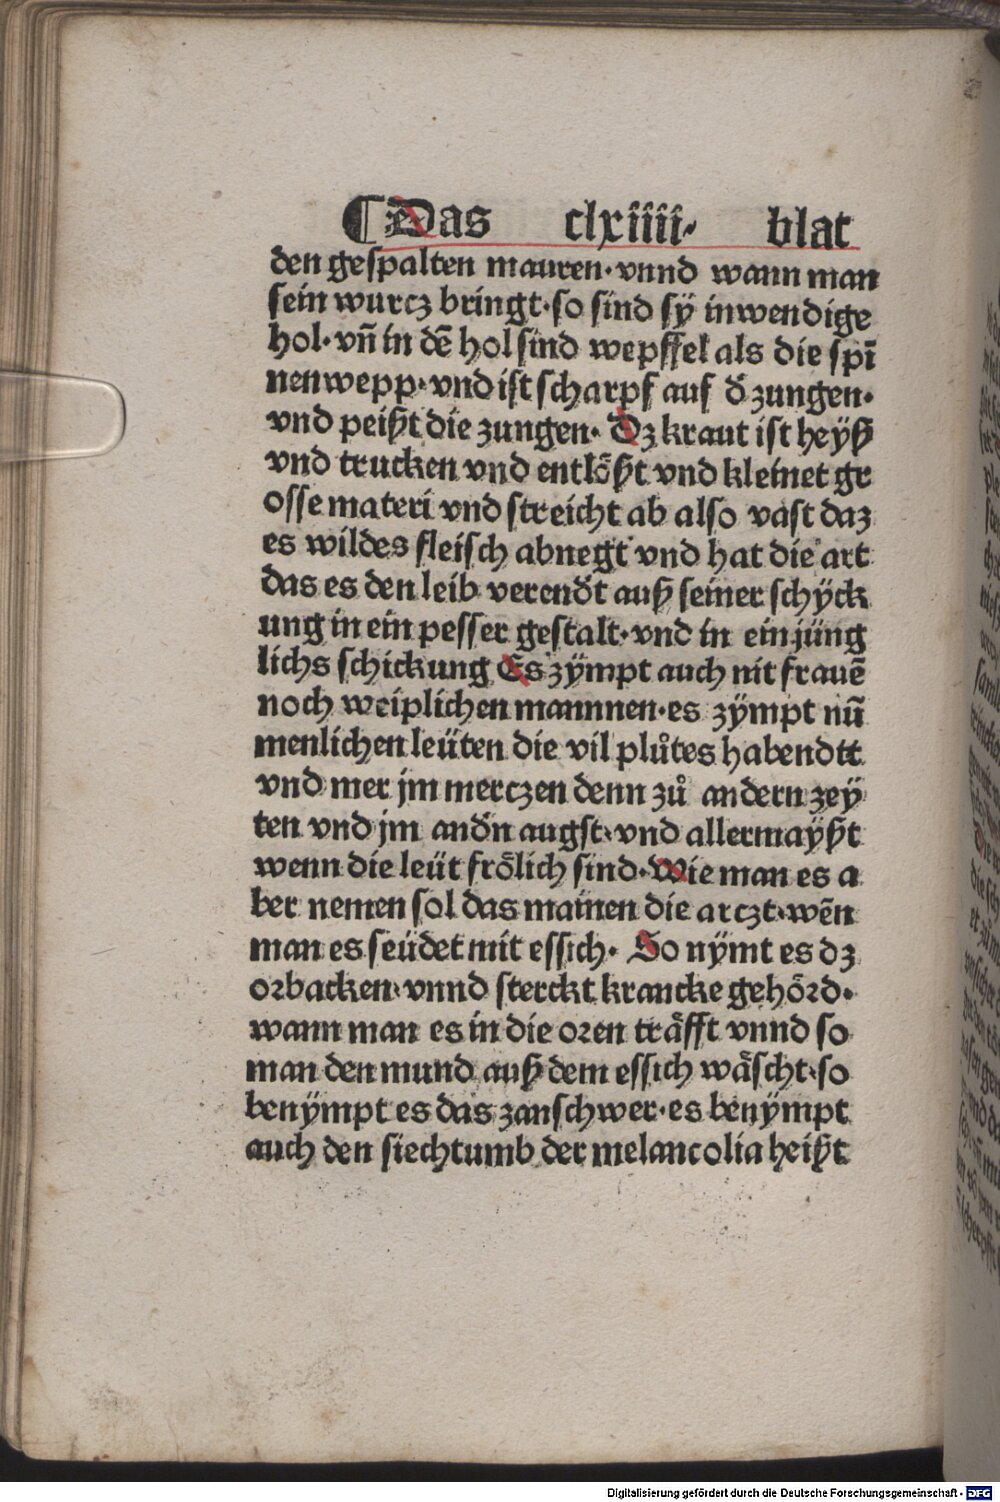 ¶ Das clxiiii· blat
den gespalten mauren·vnnd wann man
sein wurcz bringt·so sind sÿ inwendige
hol·vñ in dē hol sind wepffel als die spī
nenwepp·vnd ist scharpf auf d̄ zungen·
vnd peißt die zungen· Dz kraut ist heÿß
vnd trucken vnd entlößt vnd kleinet gr
osse materi vnd streicht ab also vast daz
es wildes fleisch abnegt vnd hat die art
das es den leib verend̄t auß seiner schÿck
ung in ein pesser gestalt·vnd in ein jüng
lichs schickung Es zÿmpt auch nit frauē
noch weiplichen mannnen·es zÿmpt nū
menlichen leüten die vil plůtes habendtt
vnd mer jm merczen denn zů andern zeÿ
ten vnd jm and̄n augst·vnd allermaÿßt
wenn die leüt frölich sind·Wie man es a
ber nemen sol das mainen die arczt·wēn
man es seüdet mit essich· So nÿmt es dz
orbacken·vnnd sterckt krancke gehörd·
wann man es in die oren träfft vnnd so
man den mund auß dem essich wäscht·so
benÿmpt es das zanschwer·es benÿmpt
auch den siechtumb der melancolia heißt
Digitalisierung gefördert durch die Deutsche Forschungsgemeinschaft - DFG